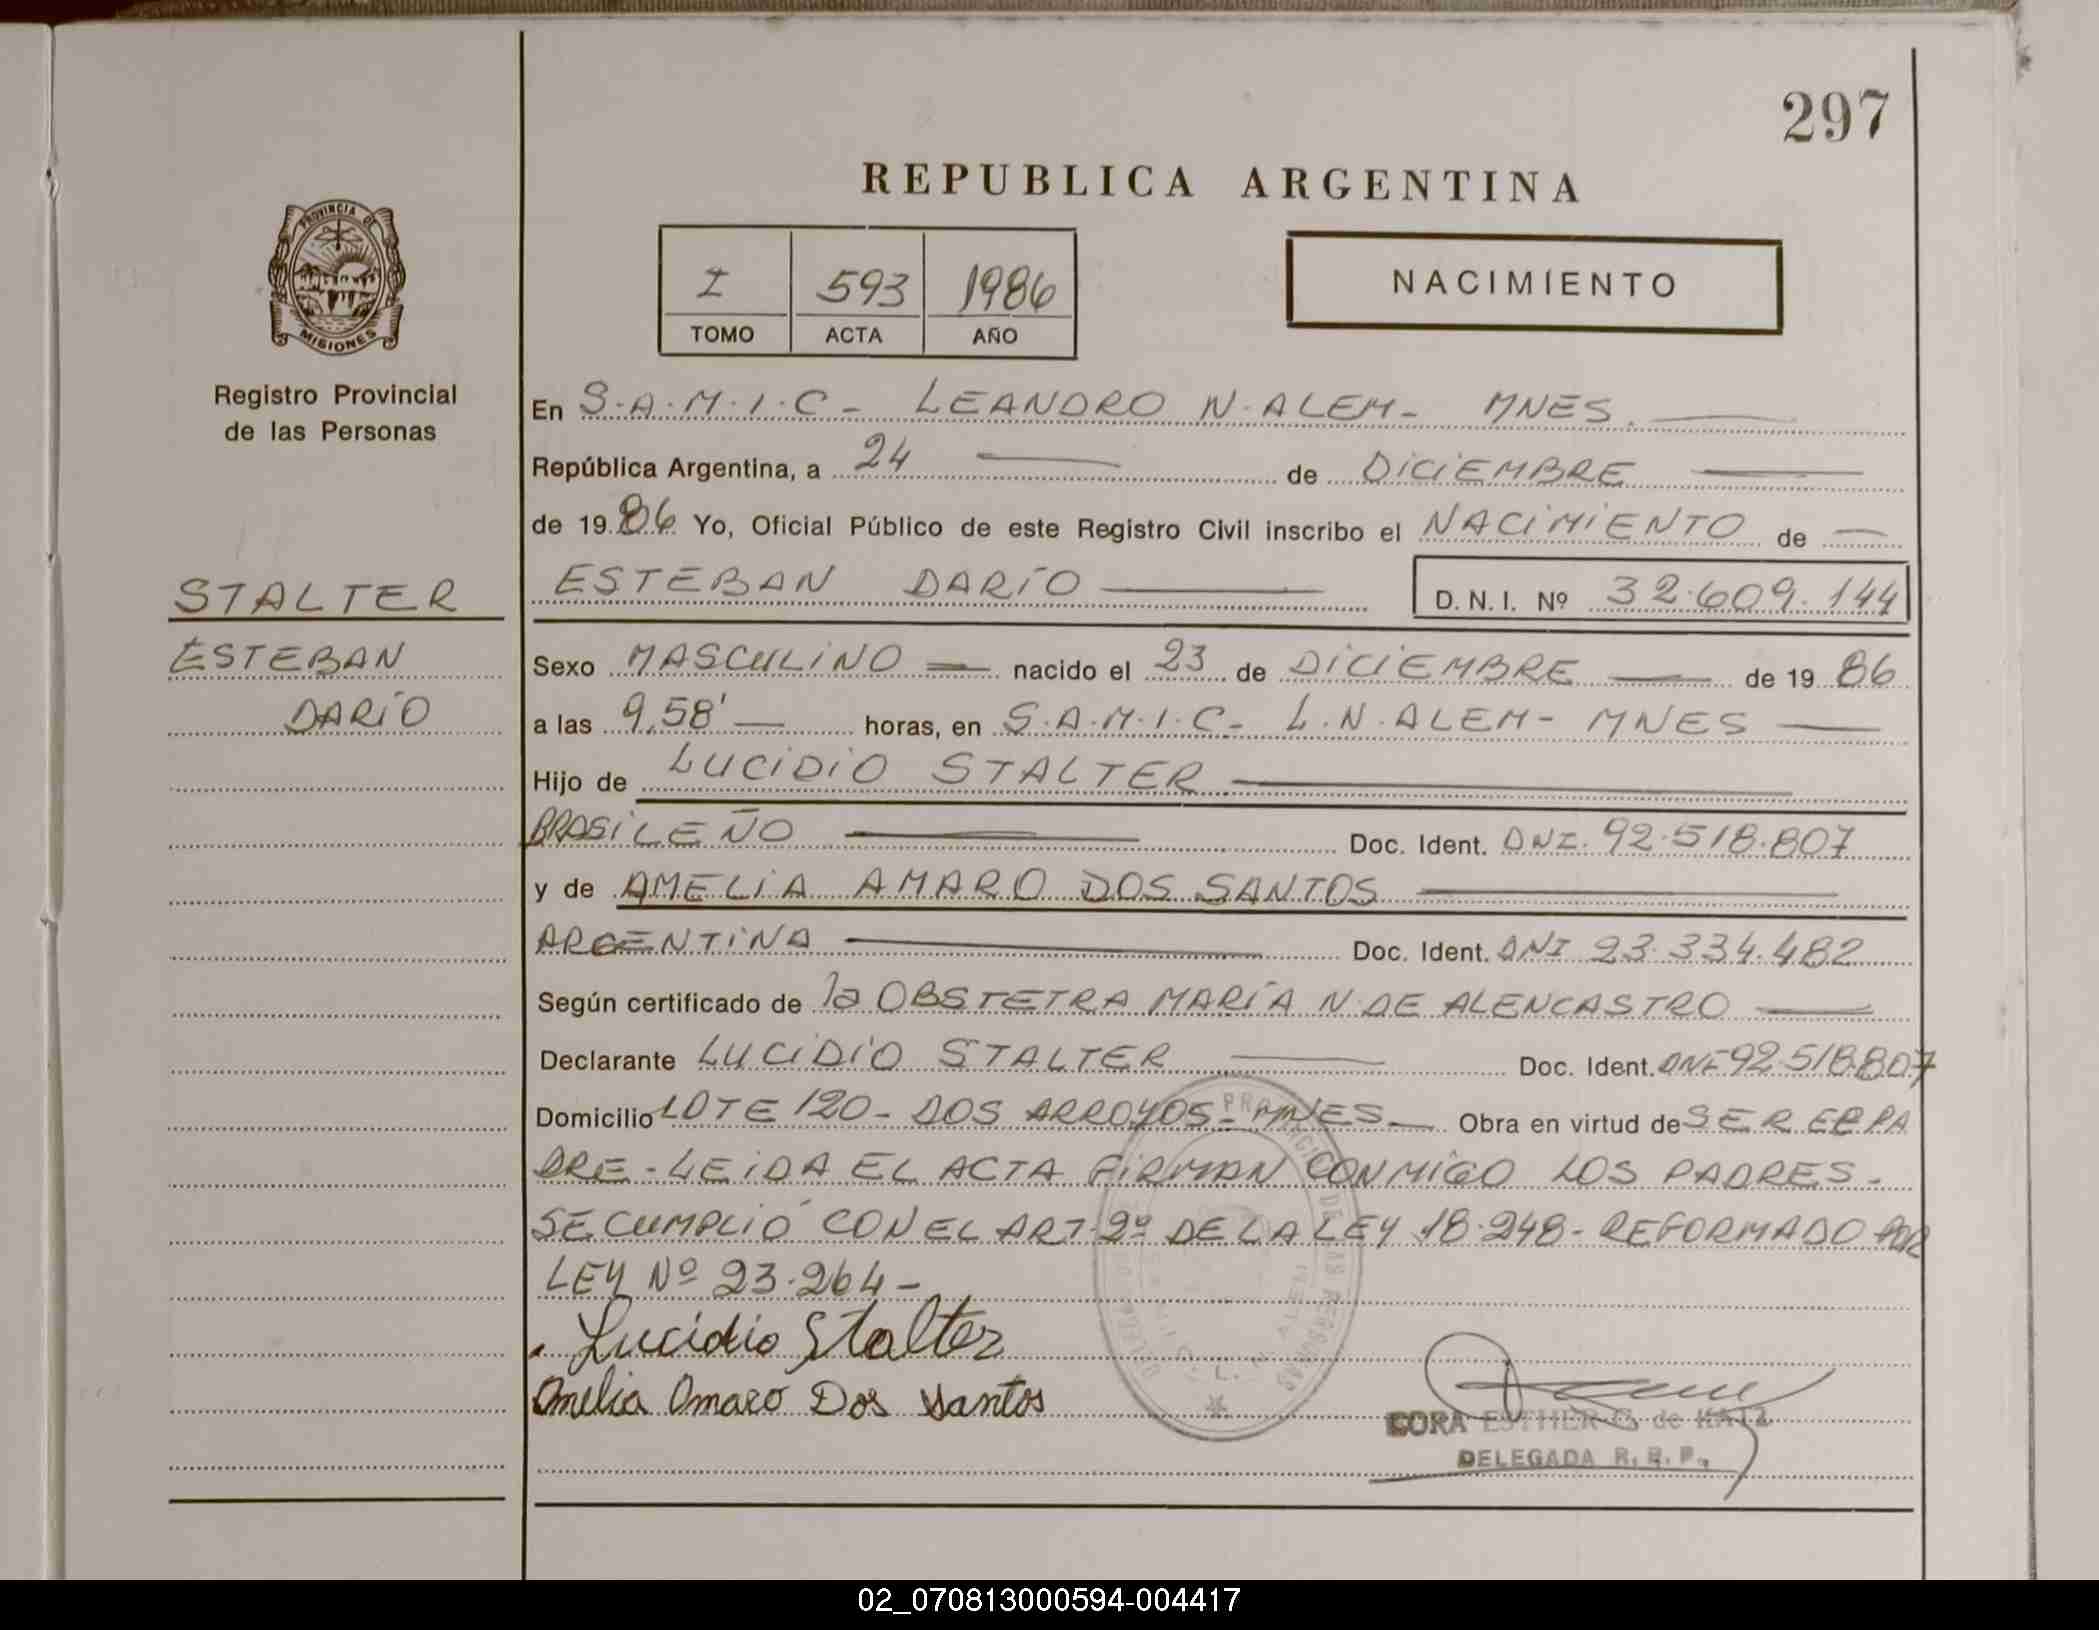 297
REPUBLICA ARGENTINA
PROVINCIA DE
MISIONES
Registro Provincial
de las Personas
I 593 1986
TOMO ACTA AÑO
NACIMIENTO
En S.A.M.I.C - LEANDRO N. ALEM - MNES.
República Argentina, a 24 de DICIEMBRE
de 1986 Yo, Oficial Público de este Registro Civil inscribo el NACIMIENTO de
STALTER
ESTEBAN
DARÍO
ESTEBAN DARÍO D. N. I. Nº 32.609.144
Sexo MASCULINO nacido el 23 de DICIEMBRE de 1986
a las 9,58' horas, en S.A.M.I.C - L.N. ALEM - MNES
Hijo de LUCIDIO STALTER
BRASILEÑO Doc. Ident. DNI. 92.518.807
y de AMELIA AMARO DOS SANTOS
ARGENTINA Doc. Ident. DNI 23.334.482
Según certificado de la OBSTETRA MARÍA N. DE ALENCASTRO
Declarante LUCIDIO STALTER Doc. Ident. DNI 92.518.807
Domicilio LOTE 120 - DOS ARROYOS - MNES - Obra en virtud de SER EL PA
DRE - LEIDA EL ACTA FIRMAN CONMIGO LOS PADRES -
SE CUMPLIÓ CON EL ART. 2º DE LA LEY 18.248 - REFORMADO POR
LEY Nº 23.264 -
Lucidio Stalter
Amelia Amaro Dos Santos
CORA ESTHER C. de KATZ
DELEGADA R. R. P.
02_070813000594-004417